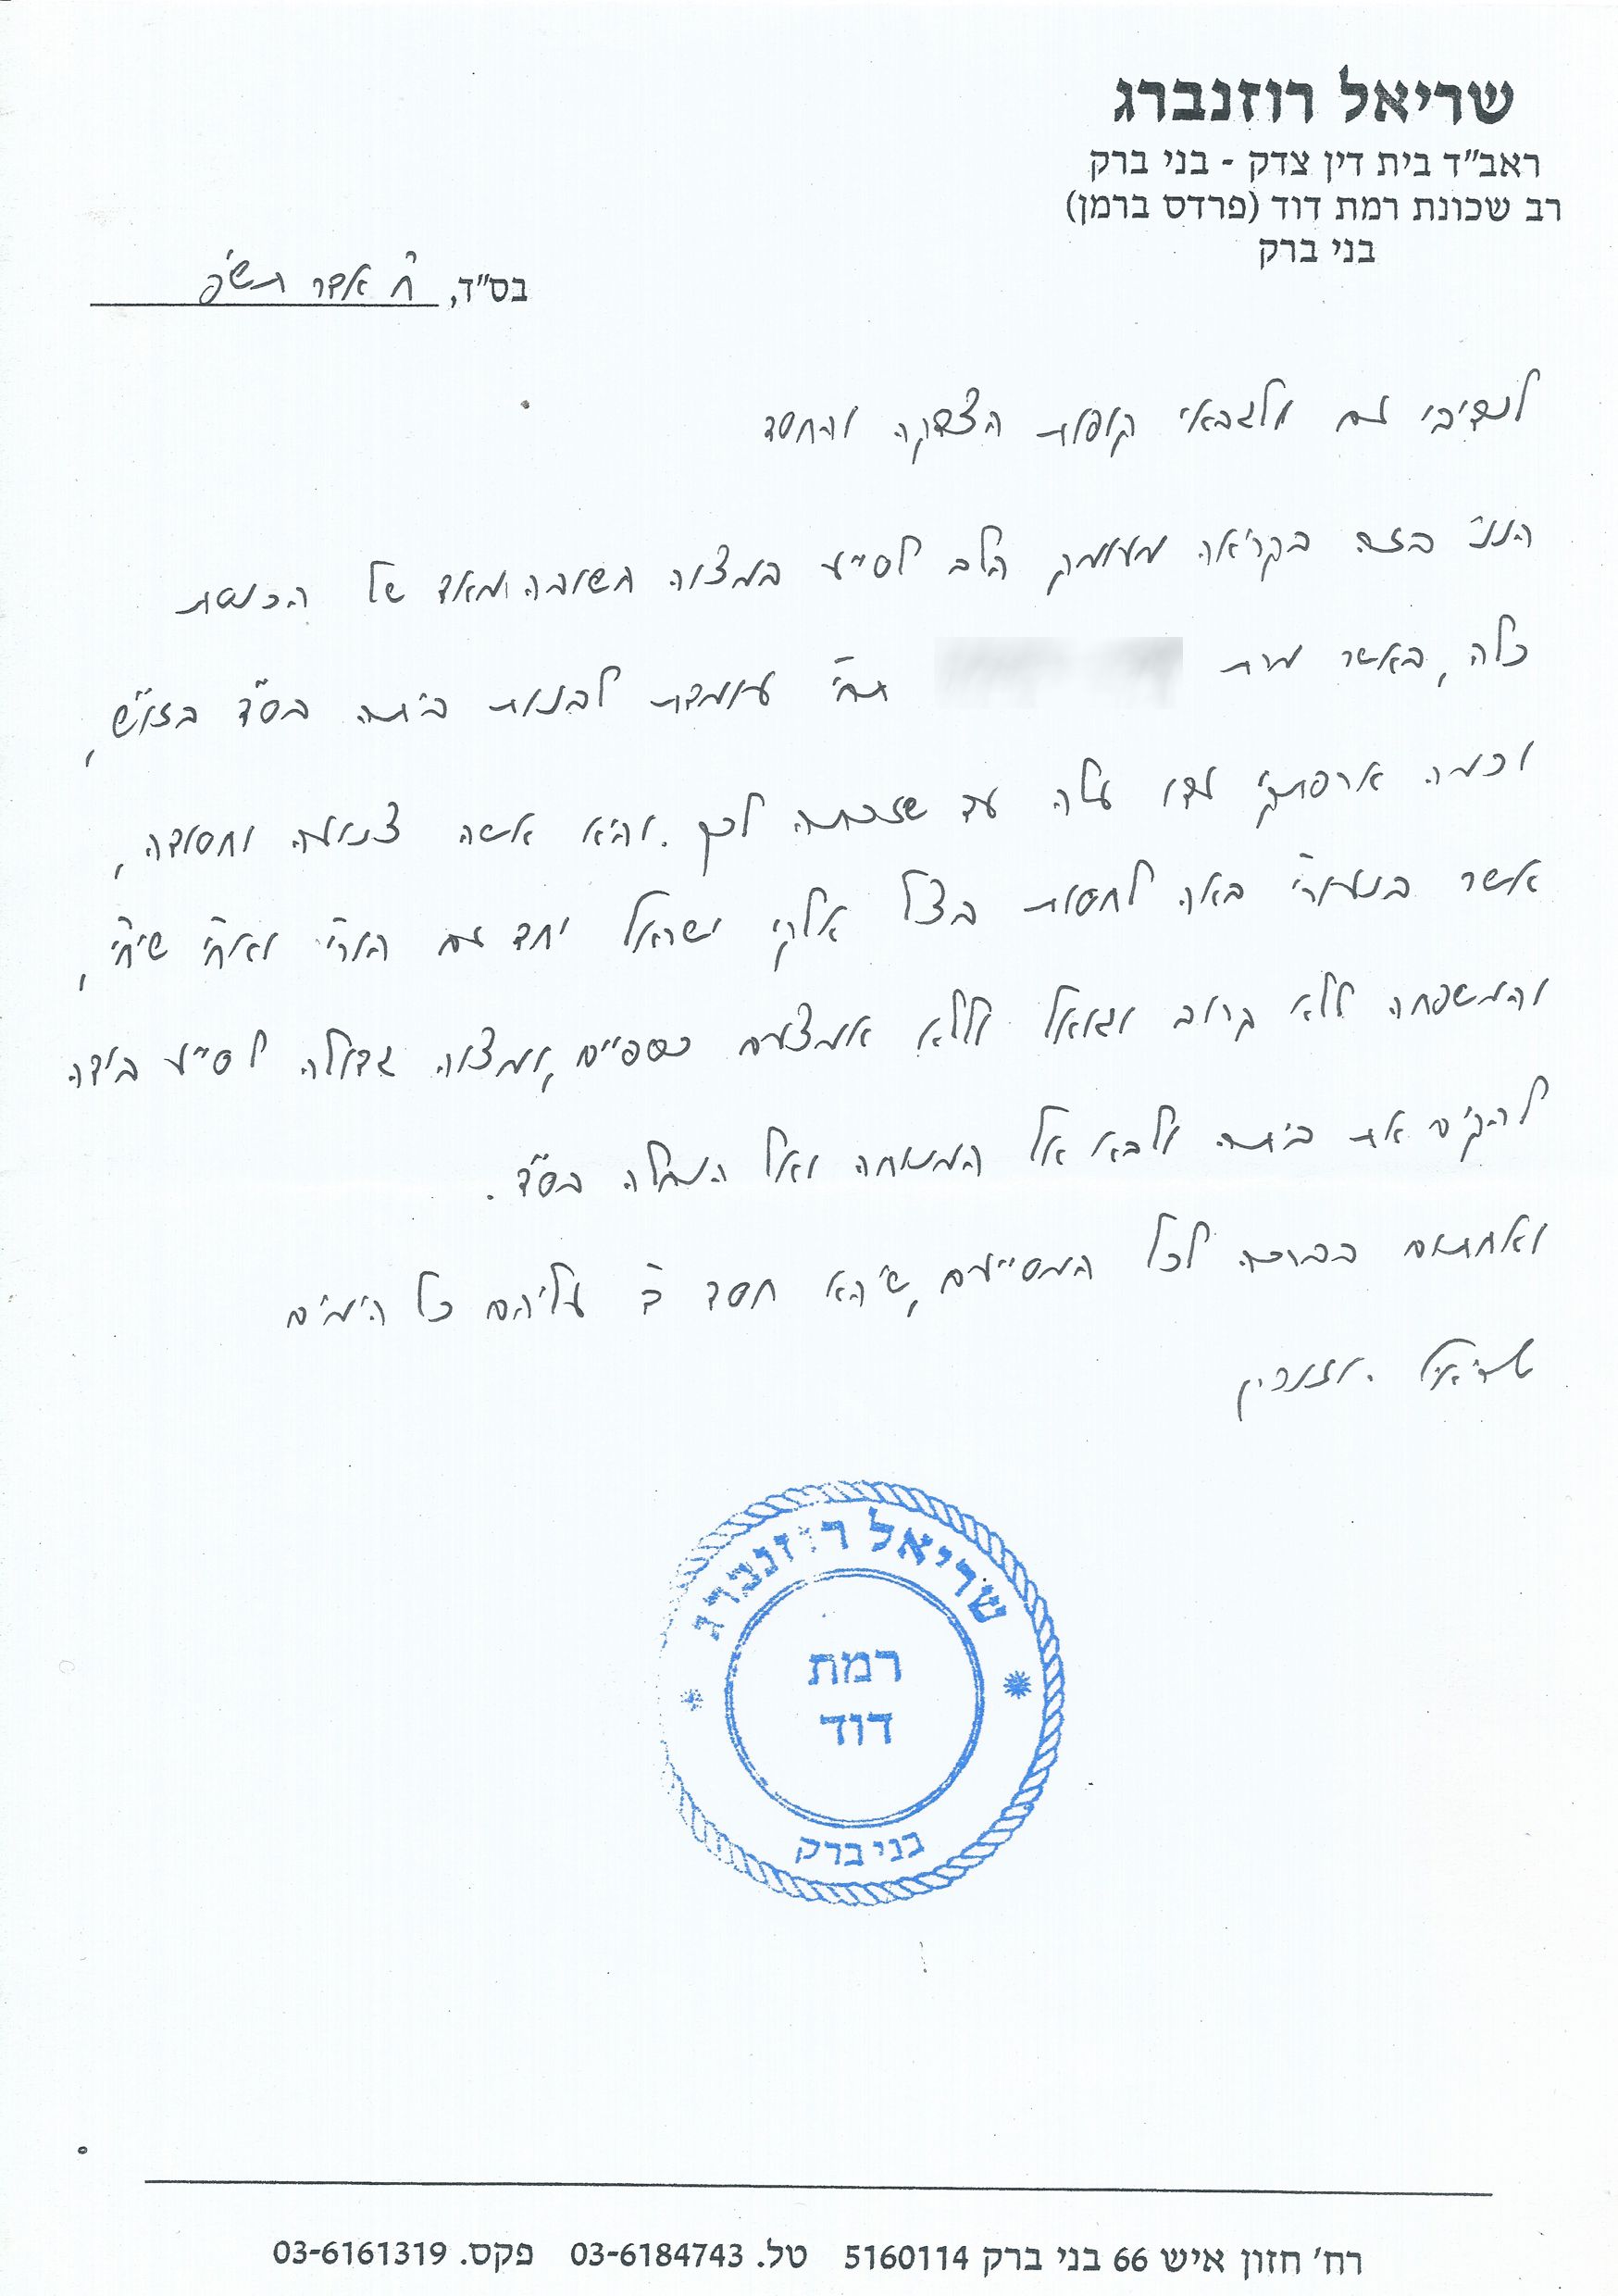 שריאל רוזנברג
ראב"ד בית דין צדק - בני ברק
רב שכונת רמת דוד (פרדס ברמן)
בני ברק
בס"ד, ח' אדר תש"פ
לנדיבי עם ולגבאי קופות הצדקה והחסד
הנני בזה בקריאה מעומק הלב לסייע במצוה חשובה ומאד של הכנסת
כלה, באשר מרת תחי' עומדת לבנות ביתה בס"ד בזו"ש,
וכמה ארפתקי עדו עלה עד שזכתה לכך. והיא אשה צנועה וחסודה,
אשר בנעורי' באה לחסות בצל אלקי ישראל יחד עם הורי' ואחי' שיחי',
והמשפחה ללא קרוב וגואל וללא אמצעים כספיים, ומצוה גדולה לסייע בידה
להקים את ביתה ולבא אל המנוחה ואל הנחלה בס"ד.
ואחתום בברכה לכל המסייעים, שיהא חסד ה' עליהם כל הימים
שריאל רוזנברג
שריאל רוזנברג
רמת
דוד
בני ברק
רח' חזון איש 66 בני ברק 5160114 טל. 03-6184743 פקס. 03-6161319